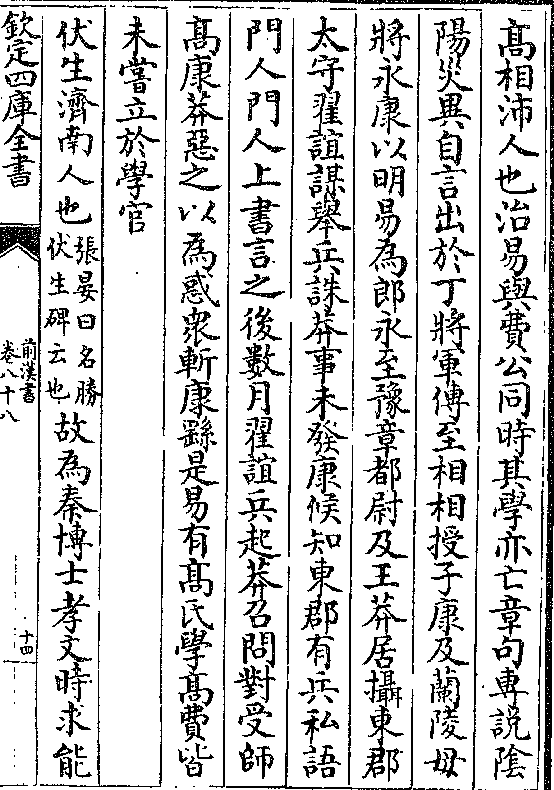 髙相沛人也治易與費公同時其學亦亡章句專説隂
陽災異自言出於丁將軍傳至相相授子康及蘭陵毋
將永康以明易為郎永至豫章都尉及王莽居攝東郡
太守翟誼謀舉兵誅莽事未發康候知東郡有兵私語
門人門人上書言之後數月翟誼兵起莽召問對受師
髙康莽惡之以為惑衆斬康繇是易有髙氏學髙費皆
未嘗立於學官
伏生濟南人也張晏曰名勝伏生碑云也故為秦博士孝文時求能
欽定四庫全書
前漢書
卷八十八
十四